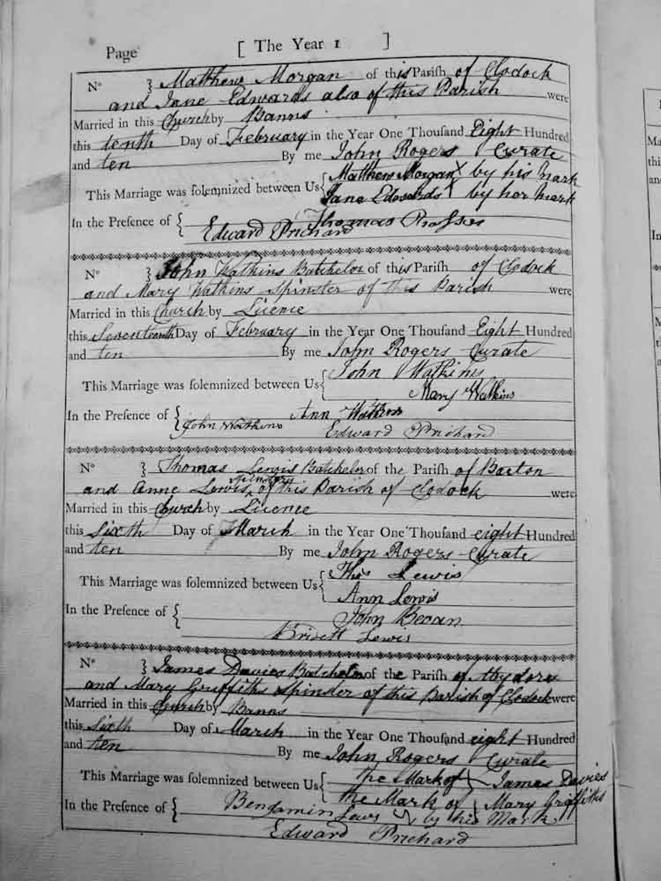 Page [ The Year 1 ]
No } Matthew Morgan of this Parish of Clodock
and Jane Edwards also of this Parish were
Married in this Church by Banns
this tenth Day of February in the Year One Thousand Eight Hundred
and ten By me John Rogers Curate
This Marriage was solemnized between Us { Matthew Morgan X by his mark
Jane Edwards X by her mark
In the Presence of { Thomas Prosser
Edward Prichard
No } John Watkins Batchelor of this Parish of Clodock
and Mary Watkins Spinster of this Parish were
Married in this Church by Licence
this Seventeenth Day of February in the Year One Thousand Eight Hundred
and ten By me John Rogers Curate
This Marriage was solemnized between Us { John Watkins
Mary Watkins
In the Presence of { Ann Watkins
John Watkins Edward Prichard
No } Thomas Lewis Batchelor of the Parish of Barton
and Anne Lewis Spinster of this Parish of Clodock were
Married in this Church by Licence
this Sixth Day of March in the Year One Thousand eight Hundred
and ten By me John Rogers Curate
This Marriage was solemnized between Us { Thos Lewis
Ann Lewis
In the Presence of { John Bevan
Lewis
No } James Davies Batchelor of the Parish of
and Mary Griffiths Spinster of this Parish of Clodock were
Married in this Church by Banns
this Sixth Day of March in the Year One Thousand eight Hundred
and ten By me John Rogers Curate
This Marriage was solemnized between Us { the Mark of } James Davies
the Mark of } Mary Griffiths
In the Presence of { Benjamin Lewis by his Mark
Edward Prichard